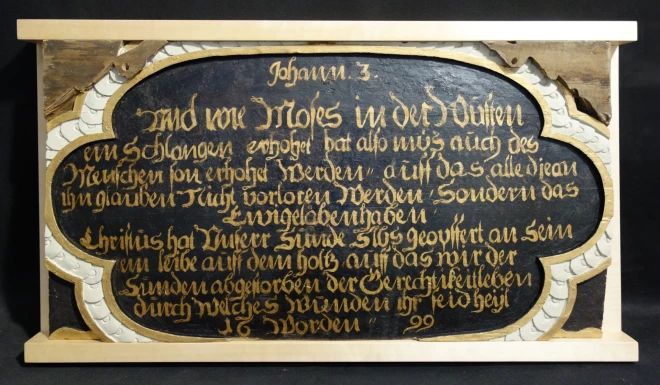 Johann. 3.
und wie Moses in der Wüsten
ein Schlangen erhohet hat also mus auch des
Menschen son erhohet Werden auff das alle die an
ihn glauben Nicht vorloren Werden Sondern das
Ewige laben haben
Christus hat Unserr Sunde Slbs geopffert an Sein
em leibe auff dem holtz auff das wir der
Sunden abgestorben der Gerechtikeit leben
durch Welches Wunden ihr seid heyl
16 Worden 99